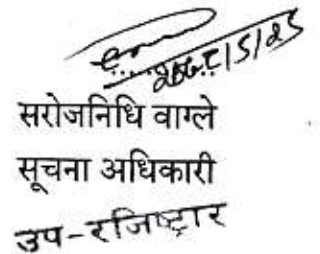 सरोजनिधि वाग्ले
सूचना अधिकारी
उप-रजिष्ट्रार